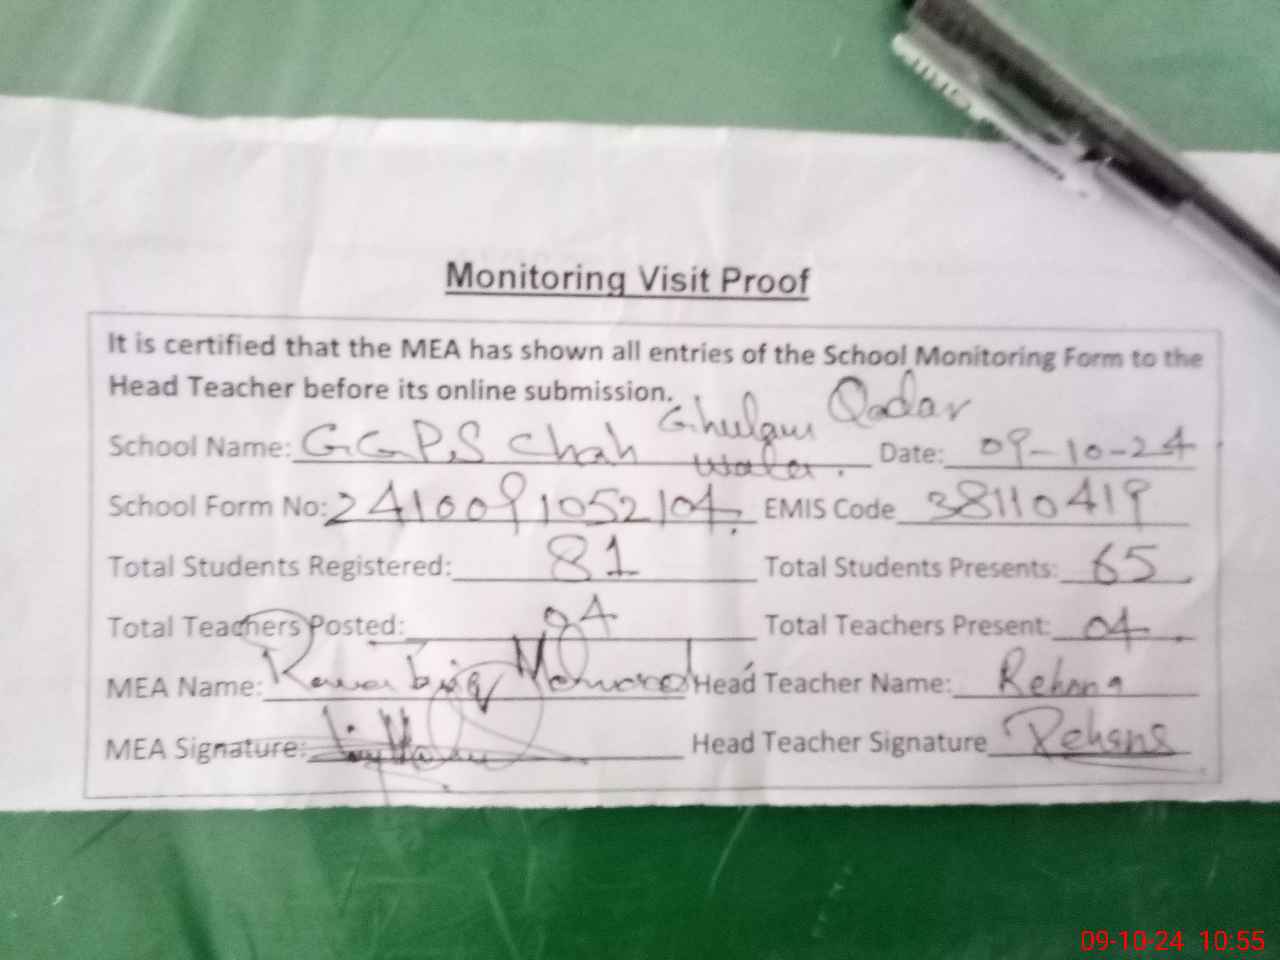 Monitoring Visit Proof
It is certified that the MEA has shown all entries of the School Monitoring Form to the
Head Teacher before its online submission.
School Name: GGPS Chah Ghulam Qadar Wala. Date: 09-10-24
School Form No: 2410091052104. EMIS Code 38110419
Total Students Registered: 81 Total Students Presents: 65
Total Teachers Posted: 04 Total Teachers Present: 04.
MEA Name: Head Teacher Name: Rehana
MEA Signature: Head Teacher Signature Rehana
09-10-24 10:55